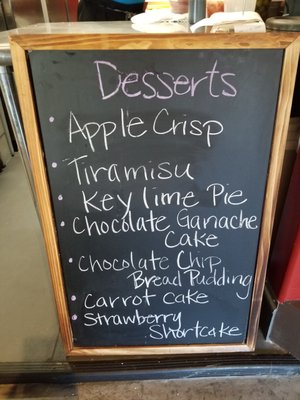 Desserts
• Apple Crisp
• Tiramisu
• Key lime Pie
• Chocolate Ganache
Cake
• Chocolate Chip
Bread Pudding
• Carrot Cake
• Strawberry
Shortcake